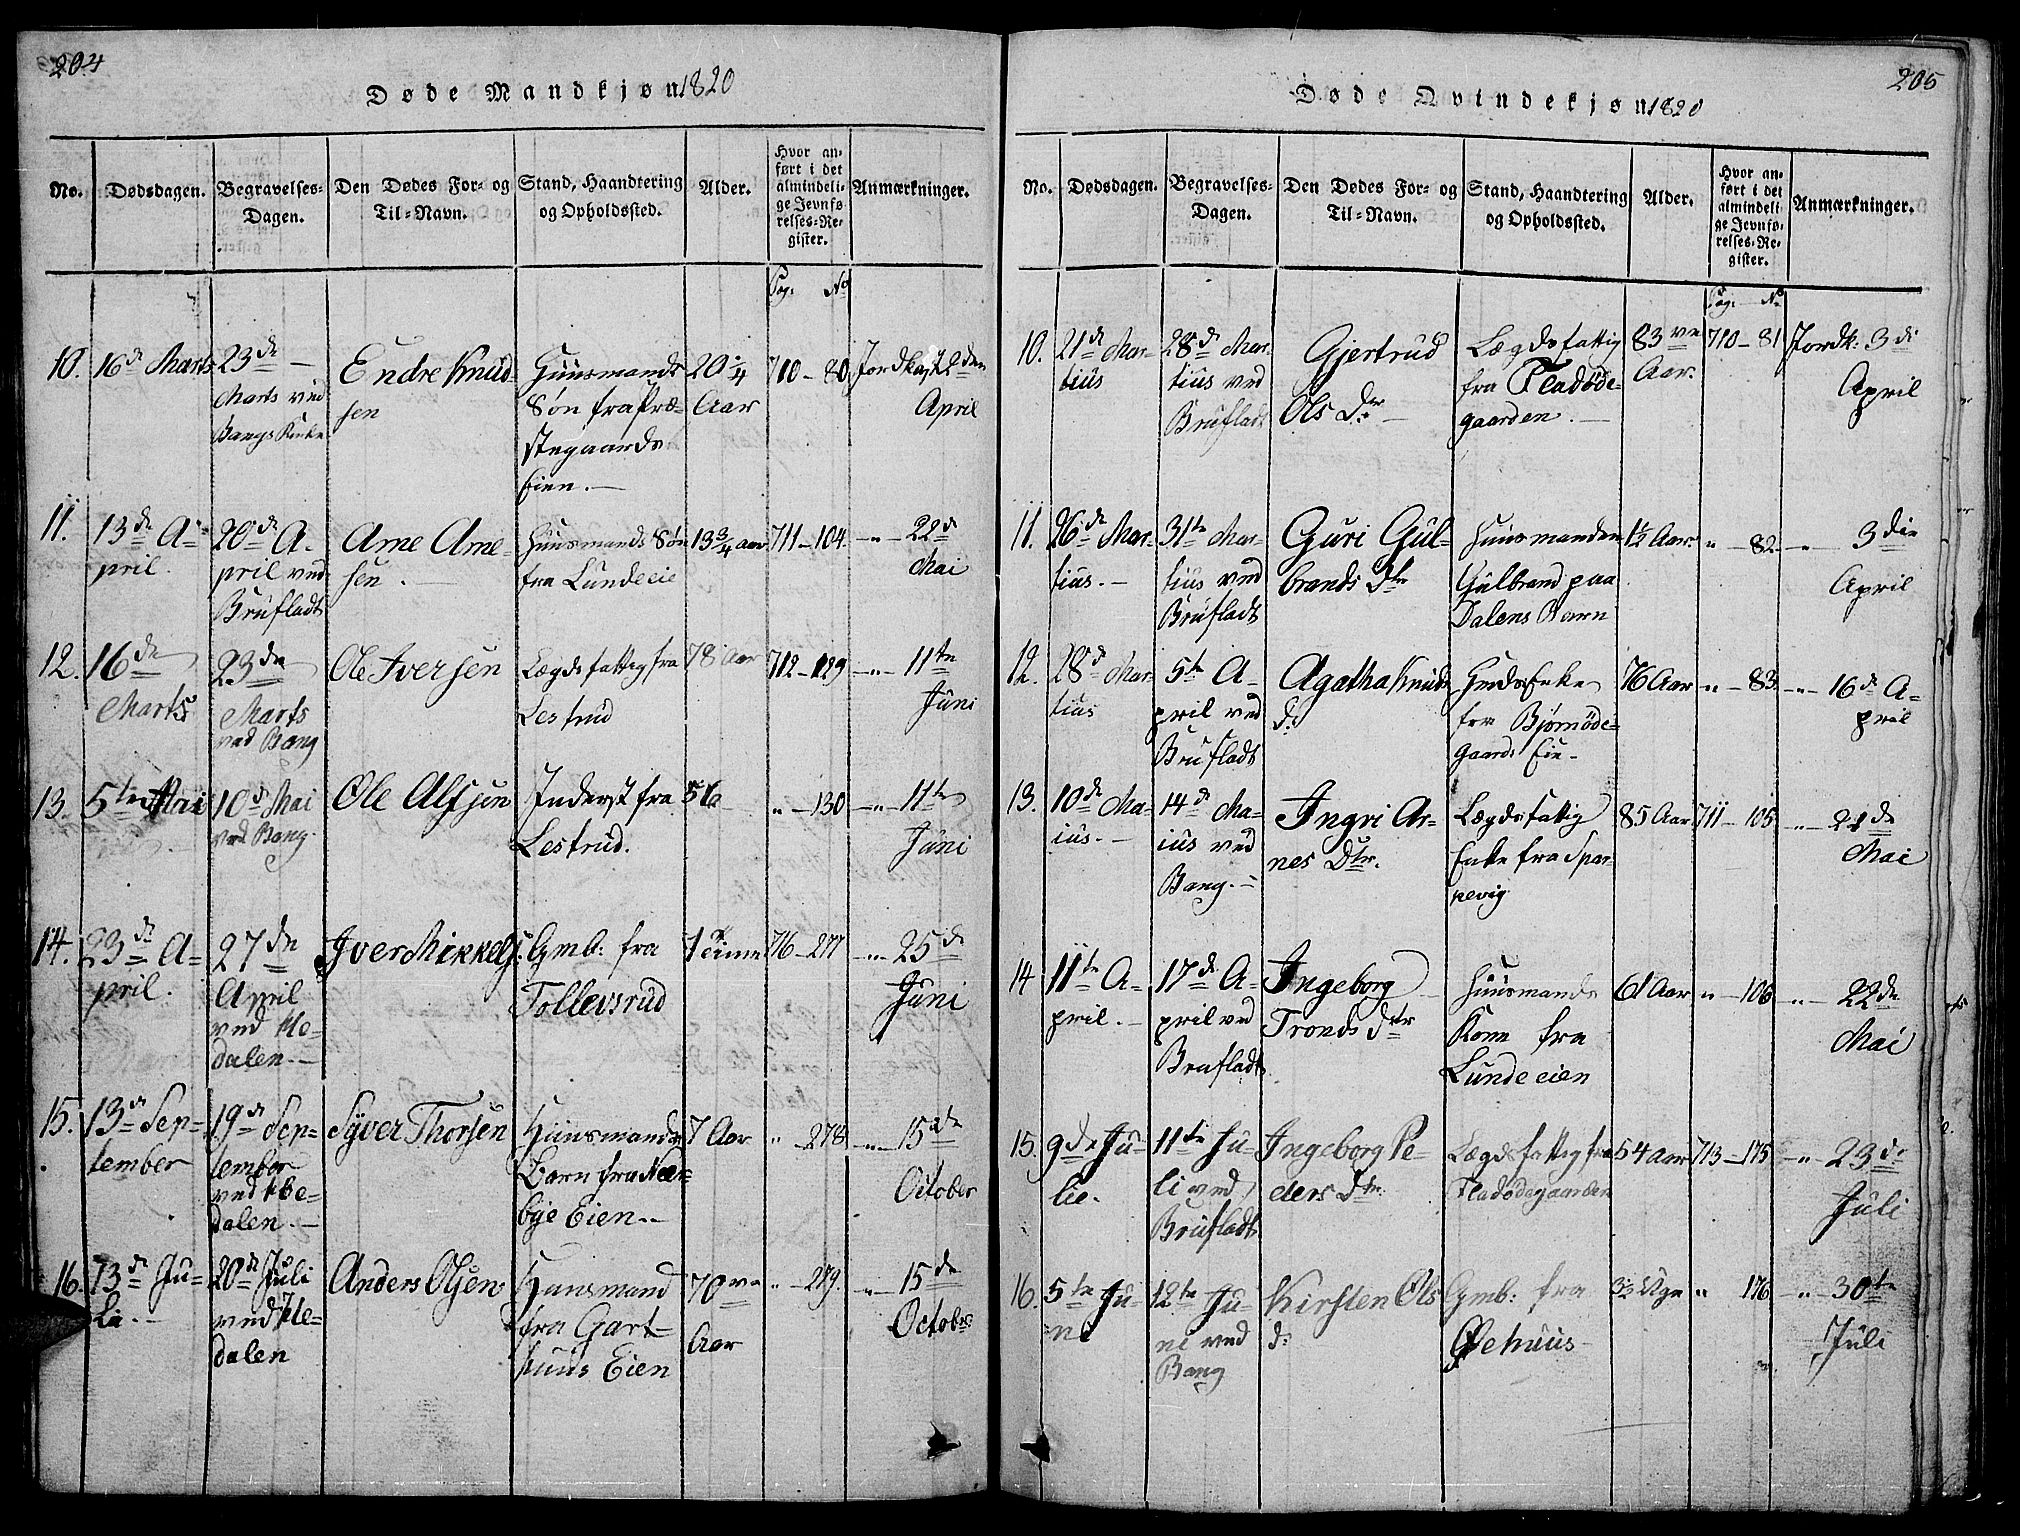 204
Døde Mandkjøn 1820
No.
Dødsdagen.
Begravelses-
Dagen.
Den Dødes For- og
Til-Navn.
Stand, Haandtering
og Opholdssted.
Alder.
Hvor an-
ført i det
almindeli-
ge Jevnfø-
relses-Re-
gister.
Anmærkninger.
Pag. No
10.
16de Marts
23de
Marts ved
Bangs Kirke
Endre Knud-
sen
Huusmands
Søn fra Præ-
stegaards
Eien.
20 1/4
Aar
710 - 80
Jordkast 2den
April
11.
13de A-
pril.
20de A-
pril ved
Brufladt
Arne Arne-
sen.
Huusmands Søn
fra Lunde eie
13 3/4 aar
711 - 104.
-"- 22de
Mai
12.
16de
Marts
23de
Marts
ved Bang
Ole Iversen
Lægdsfattig fra
Lestrud
78 Aar
712 - 129
-"- 11te
Juni
13.
5te Mai
10de Mai
ved Bang.
Ole Alfsen
Inderst fra
Lestrud.
" - 130
-"- 11te
Juni
14.
23de A-
pril.
27de
April
ved He-
dalen.
Iver Mikkels:
Gmb: fra
Tollevsrud
716 - 277
-"- 25de
Juni
15.
13de Sep-
tember
19de Sep-
tember
ved He-
dalen.
Syver Thorsen
Huusmands
Barn fra Nær-
bye Eien.
7 Aar
" - 278
-"- 15de
October
16.
13de Ju-
li.
20de Juli
ved He-
dalen
Anders Olsen
Huusmand
fra Gart-
huus Eien
70ve
Aar
" - 279.
-"- 15de
October
205
Døde Qvindekjøn 1820
No.
Dødsdagen.
Begravelses-
Dagen.
Den Dødes For- og
Til-Navn.
Stand, Haandtering
og Opholdssted.
Alder.
Hvor an-
ført i det
almindeli-
ge Jevnfø-
relses-Re-
gister.
Anmærkninger.
Pag. No
10.
21de Mar-
tius
28de Mar-
tius ved
Brufladt
Gjertrud
Ols Dtr
Lægdsfattig
fra Fladøde-
gaarden.
83ve
Aar.
710 - 81
Jordk: 3di
April
11.
26de Mar-
tius.
31te Mar-
tius ved
Brufladt
Guri Gul-
brands Dtr
Huusmanden
Gulbrand paa
Dalens Barn
1 1/2 Aar.
" - 82
-"- 3die
April
12.
28de Mar-
tius
5te A-
pril ved
Brufladt
Agatha Knuds
d:
fra Bjørnøde-
gaards Eie
76 Aar
" - 83
-"- 16de A-
pril
13.
10de Ma-
ius.
14de Ma-
ius ved
Bang.
Ingri Ar-
nes Dtr.
Lægdsfattig
Enke fra Spar-
revig
85 Aar
711 - 105
-"- 22de
Mai
14
11te A-
pril.
17de A-
pril ved
Brufladt.
Ingeborg
Tronds Dtr
Huusmands
Kone fra
Lunde eien
61 Aar
" - 106
-"- 22de
Mai
15.
9de Ju-
lie.
11te Ju-
li ved
Brufladt
Ingeborg Pe-
ders Dtr
Lægdsfattig fra
Fladødegaarden
54 Aar
713 - 175
-"- 23de
Juli
16.
5te Ju-
ni
12te Ju-
ni ved
Bang
Kirsten Ols
d:
Gmb: fra
Øehuus
3 1/2 Uge
" 176
-"- 30te
Juli